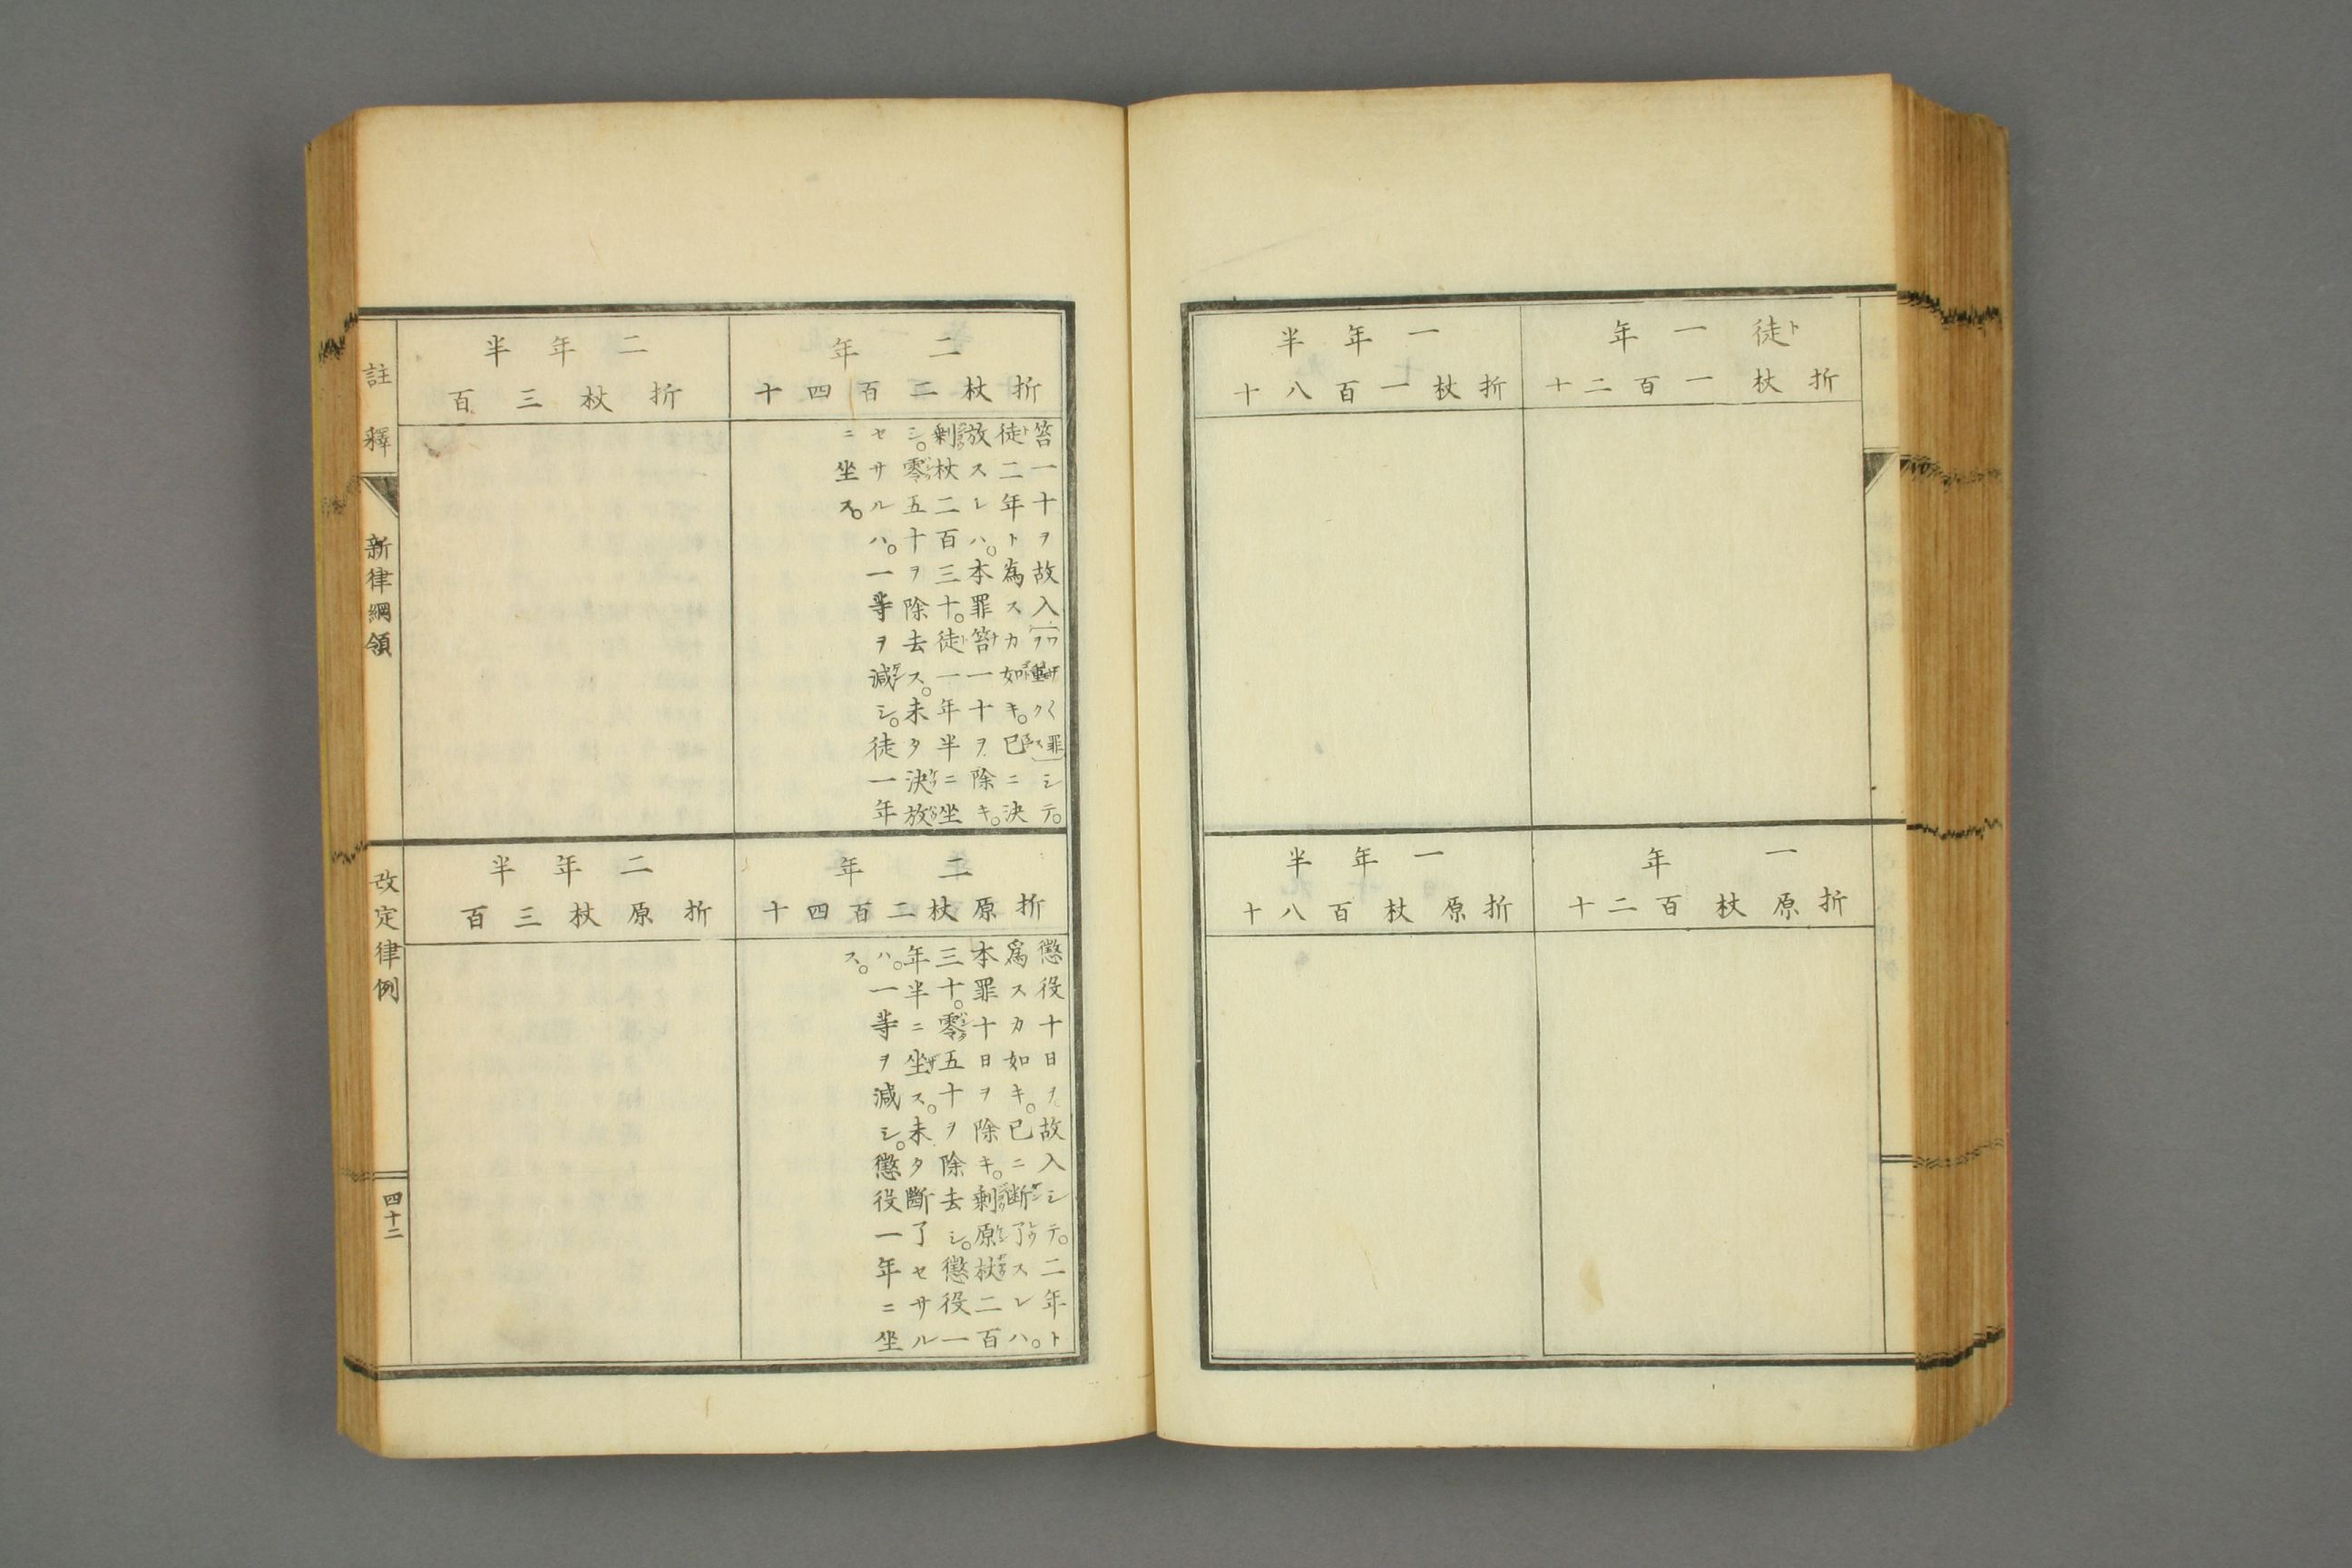 徒一年
折杖一百二十
一年半
折杖一百八十
一年
折原杖百二十
一年半
折原杖百八十
二年
折杖二百四十
笞一十ヲ故入シテ。
徒二年ト為スカ如キ。已ニ決
放スレハ。本罪笞一十ヲ除キ。
剰杖二百三十。徒一年半ニ坐
シ。零五十ヲ除去ス。未タ決放
セサルハ。一等ヲ減シ。徒一年
ニ坐ス。
二年半
折杖三百
二年
折原杖二百四十
懲役十日ヲ故入シテ。二年ト
爲スカ如キ。已ニ断了スレハ。
本罪十日ヲ除キ。剰原杖二百
三十。零五十ヲ除去シ。懲役一
年半ニ坐ス。未タ斷了セサル
ハ。一等ヲ減シ。懲役一年ニ坐
ス。
二年半
折原杖三百
註釋
新律綱領
改定律例
四十二